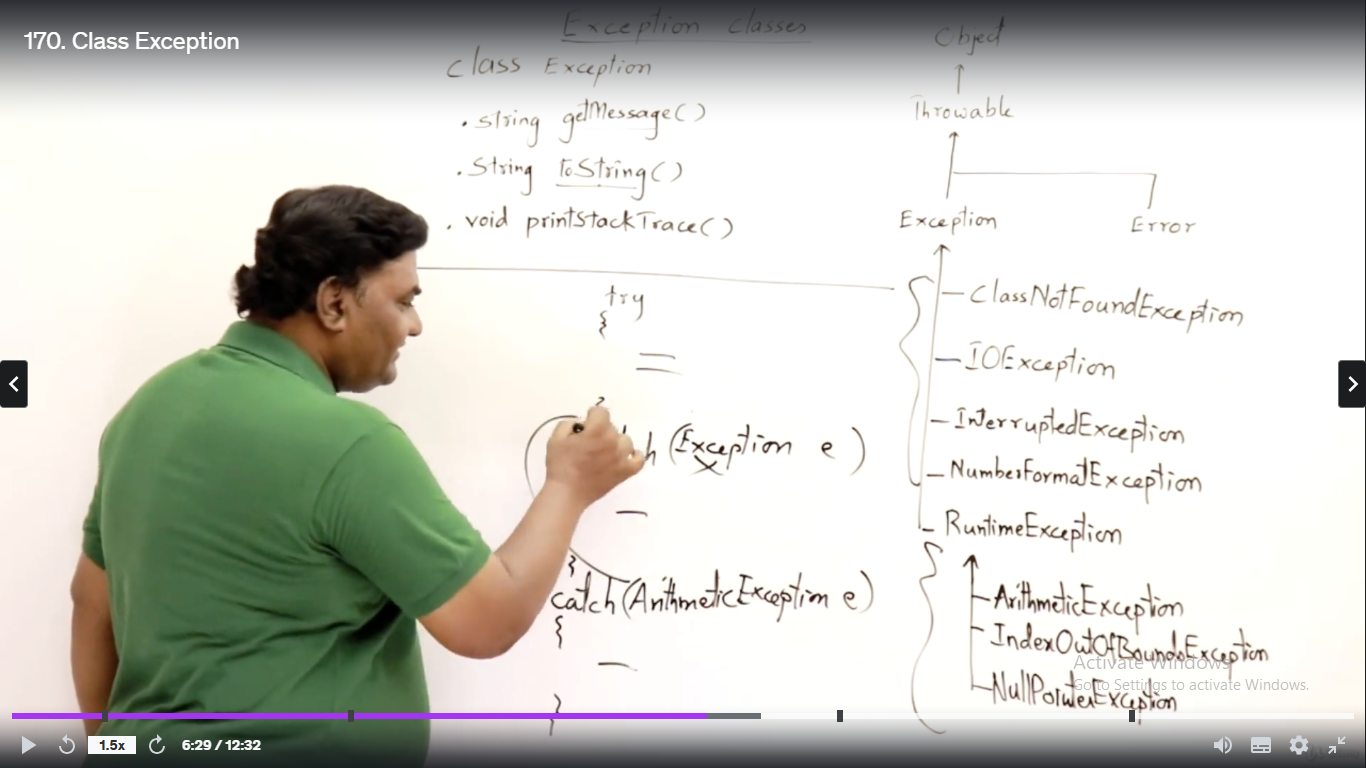 170. Class Exception
Exception Classes
class Exception
. String getMessage()
. String toString()
. void printStackTrace()
try
{
(Exception e)
}
catch(ArithmeticException e)
{
}
Object
Throwable
Exception
Error
ClassNotFoundException
IOException
InterruptedException
NumberFormatException
RuntimeException
ArithmeticException
IndexOutOfBoundsException
NullPointerException
Activate Windows
Go to Settings to activate Windows.
1.5x
6:29 / 12:32